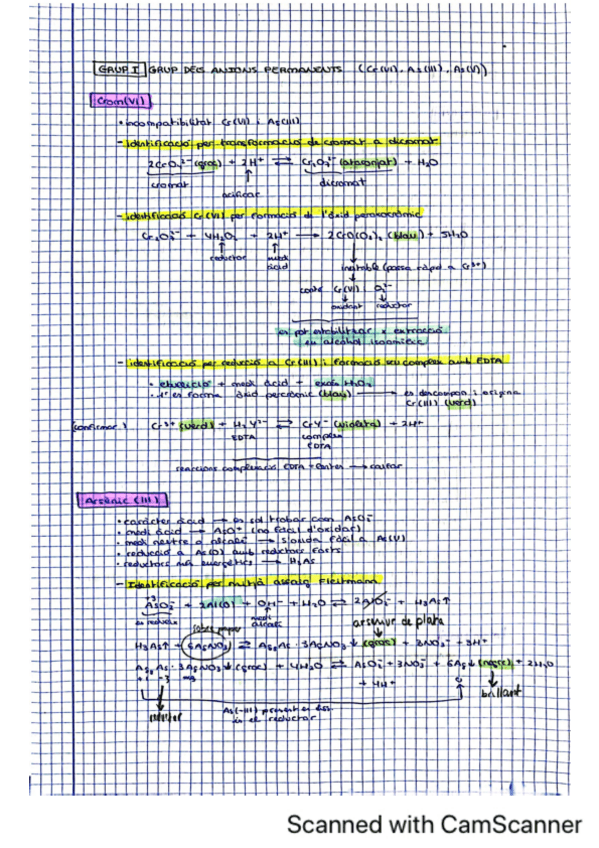 GRUP I GRUP DELS ANIONS PERMANENTS (Cr(VI), As(III), As(V))
Crom(VI)
• incompatibilitat Cr(VI) i As(III)
- identificació per transformació de cromat a dicromat
2CrO₄²⁻ (groc) + 2H⁺ ⇌ Cr₂O₇²⁻ (ataronjat) + H₂O
cromat dicromat
acidificar
- identificació Cr(VI) per formació de l'àcid peroxocròmic
Cr₂O₇²⁻ + 4H₂O₂ + 2H⁺ → 2CrO(O₂)₂ (blau) + 5H₂O
reductor medi àcid
inestable (passa ràpid a Cr³⁺)
conté Cr(VI) O₂²⁻
oxidant reductor
es pot estabilitzar x extracció
en alcohol isoamílic
- identificació per reducció a Cr(III) i formació seu complex amb EDTA
• ebullició + medi àcid + excés H₂O₂
àcid percròmic (blau) → es descompon i origina
Cr(III) (verd)
(confirmar) Cr³⁺ (verd) + H₂Y²⁻ ⇌ CrY⁻ (violeta) + 2H⁺
EDTA complex
EDTA
reaccions complexació EDTA + lentes → calfar
Arsènic (III)
• caràcter àcid → es sol trobar com AsO₂⁻
• medi àcid → AsO⁺ (no fàcil d'oxidar)
• medi neutre o alcalí → s'oxida fàcil a As(V)
• reducció a As(0) amb reductors forts
• reductors més energètics → H₃As
- Identificació per mitjà assaig Fleitmann
+3
AsO₂⁻ + 2Al(0) + OH⁻ + H₂O ⇌ 2AlO₂⁻ + H₃As↑
es redueix medi alcalí arseniur de plata
sobre paper
H₃As↑ + 6AgNO₃ ⇌ Ag₃As · 3AgNO₃↓ (groc) + 3NO₃⁻ + 3H⁺
Ag₃As · 3AgNO₃↓ (groc) + 4H₂O ⇌ AsO₂⁻ + 3NO₃⁻ + 6Ag↓ (negre) + 2H₂O
+1 -3 + 4H⁺ brillant
As(-III) present en
és el reductor
Scanned with CamScanner